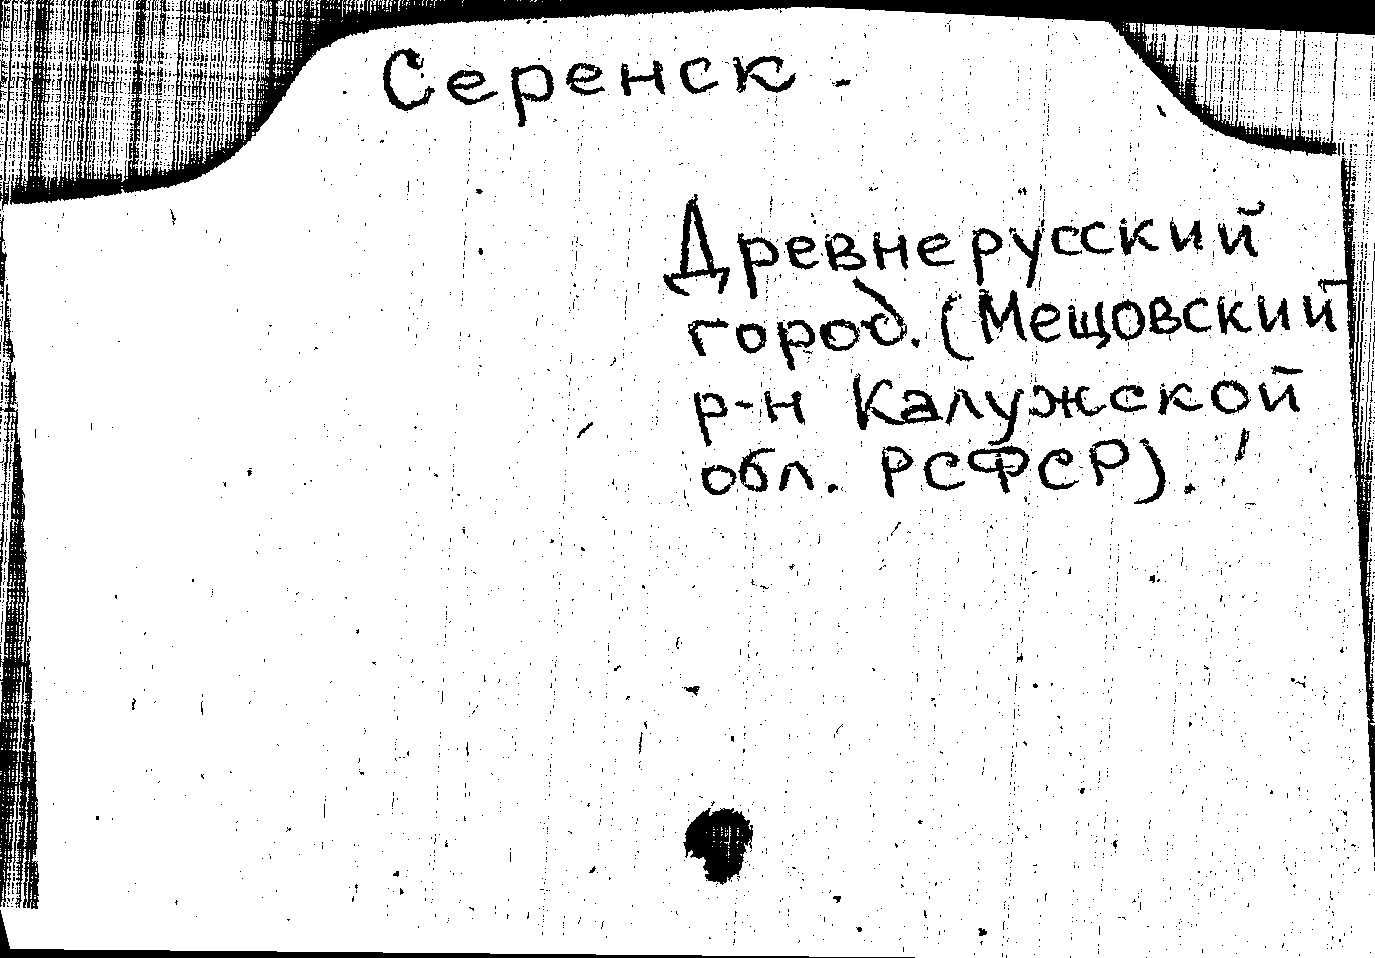 Серенск -
Древнерусский
город. (Мещовский
р-н Калужской
обл. РСФСР).